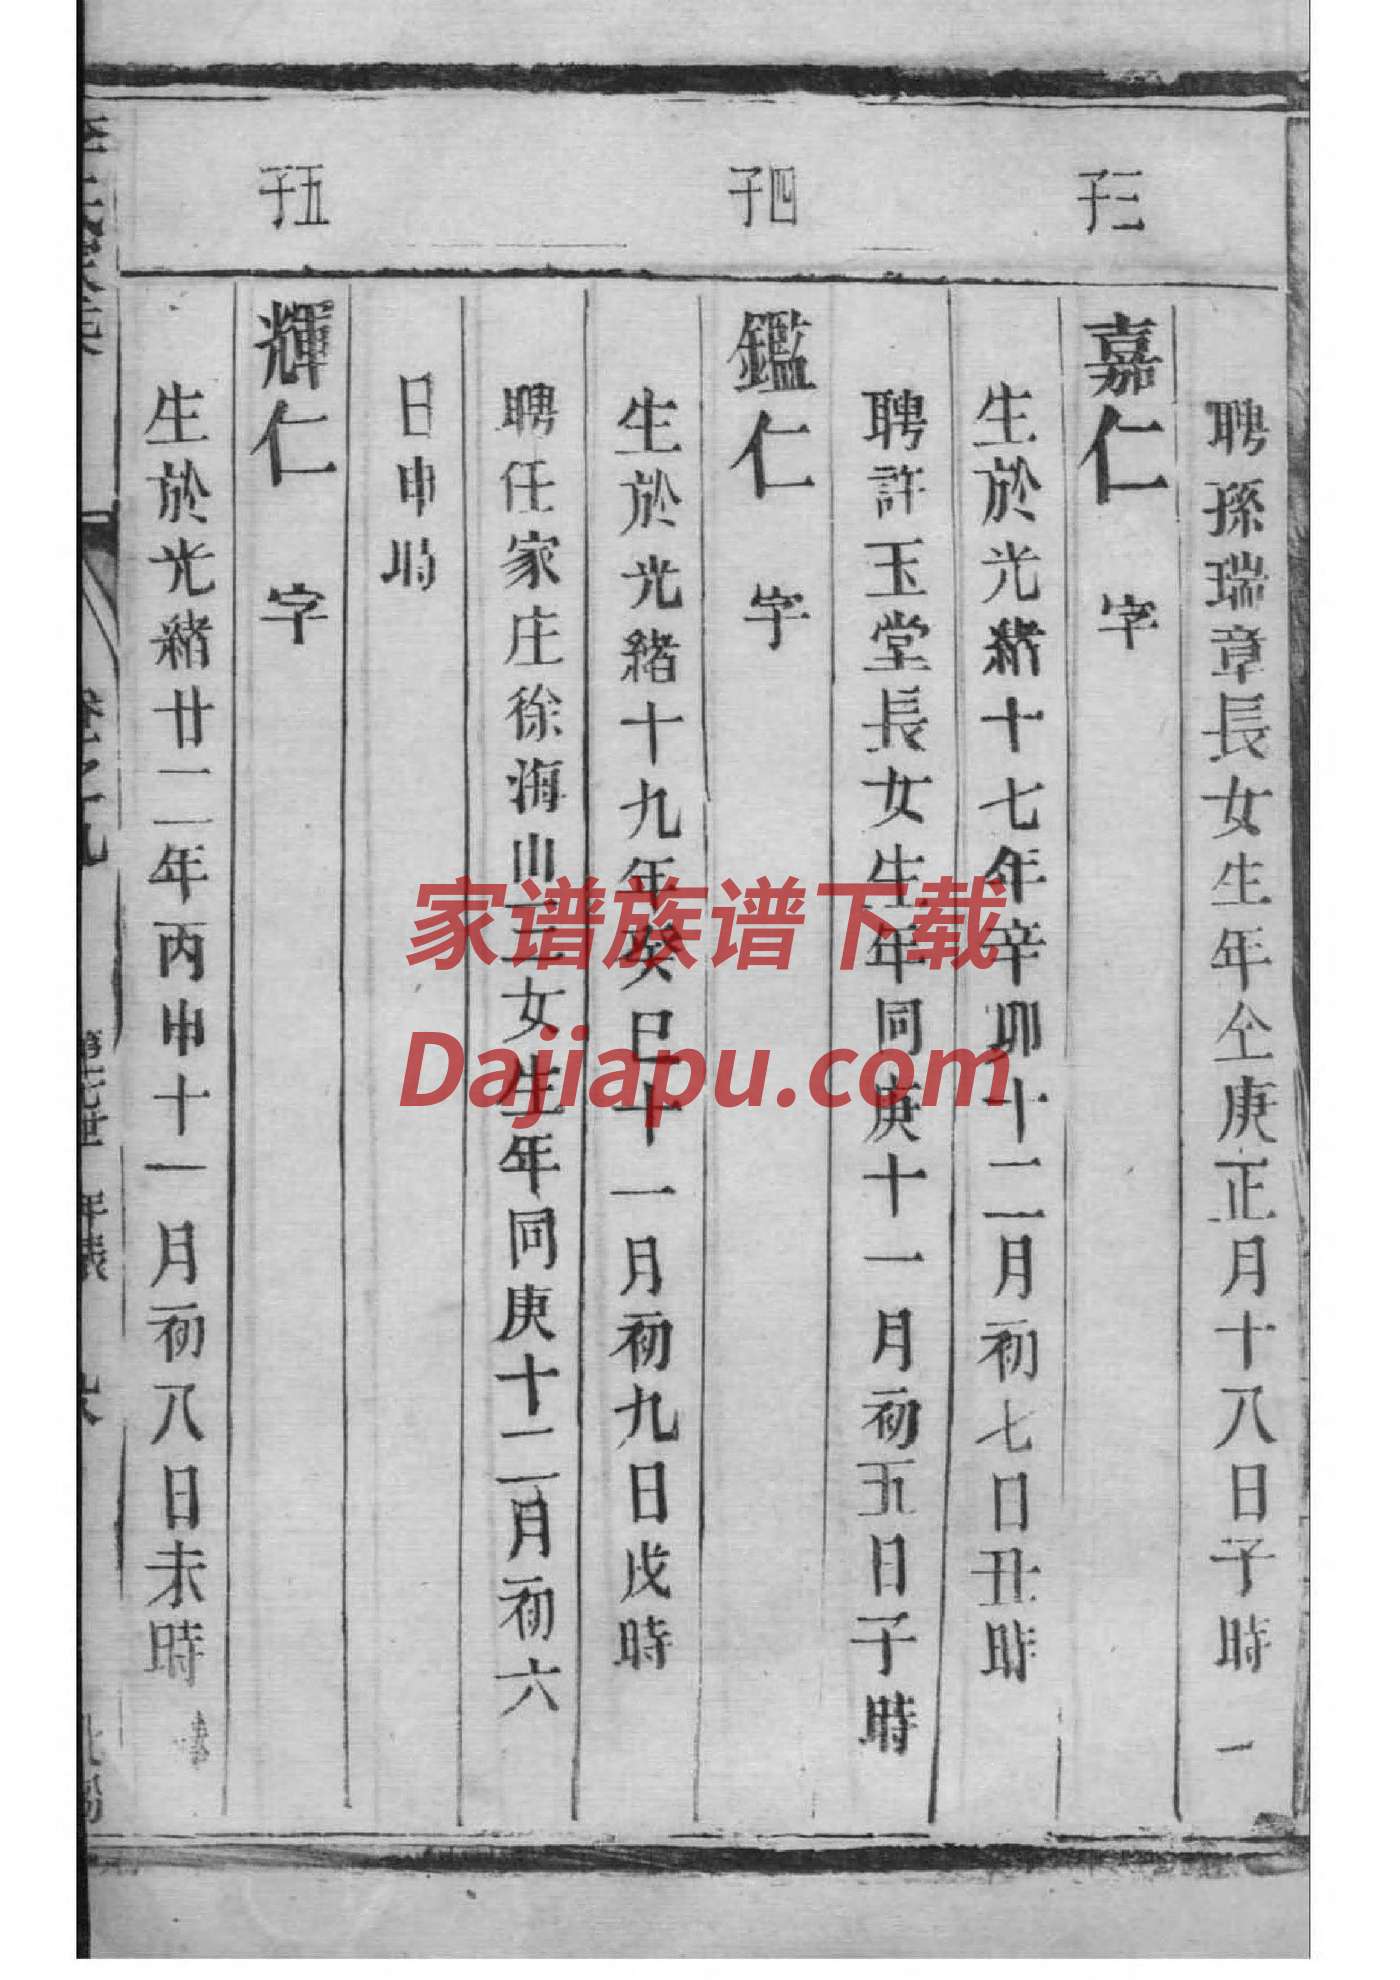 三子
四子
五子
聘孫瑞章長女生年仝庚正月十八日子時 一
嘉仁 字
生於光緒十七年辛卯十二月初七日丑時
聘許玉堂長女生年同庚十一月初五日子時
鑑仁 字
生於光緒十九年癸巳十一月初九日戌時
聘任家庄徐海山三女生年同庚十二月初六
日申時
輝仁 字
生於光緒廿二年丙申十一月初八日未時
家谱族谱下载
Dajiapu.com